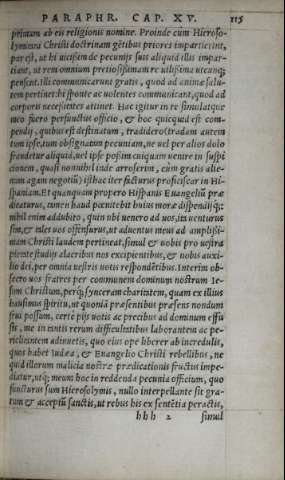 PARAPHR. CAP. XV. 115
prium ab eis religionis nomine. Proinde cum Hieroso-
lymitani Christi doctrinam gētibus priores impartierint,
par est, ut hi uicissim de pecunijs suis aliquid illis impar-
tiant, ut rem omnium pretiosissimam re utilissima utcunq;
pensent. Illi communicarunt gratis, quod ad animæ salu-
tem pertinet: hi sponte ac uolentes communicant, quod ad
corporis necessitates attinet. Hac igitur in re simulatque
meo fuero perfunctus officio, & hoc quicquid est com-
pendij, quibus est destinatum, tradidero (tradam autem
tum ipse, tum obsignatam pecuniam, ne uel per alios dolo
fraudetur aliquid, uel ipse possim cuiquam uenire in suspi
cionem, quasi nonnihil inde arroserim, cum gratis alie-
num agam negotiū) isthac iter facturus proficiscar in Hi-
spaniam. Et quanquam propero Hispanis Euangeliū præ
dicaturus, tamen haud pœnitebit huius moræ dispendijq;
nihil enim addubito, quin ubi uenero ad uos, ita uenturus
sim, & tales uos offensurus, ut aduentus meus ad amplissi-
mam Christi laudem pertineat, simul & uobis pro uestra
pietate studijs alacribus nos excipientibus, & nobis auxi-
lio dei, per omnia uestris uotis respondētibus. Interim ob-
secro uos fratres per communem dominum nostrum Ie-
sum Christum, perq; synceram charitatem, quam ex illius
hausimus spiritu, ut quoniā præsentibus præsens nondum
frui possum, certe pijs uotis ac precibus ad dominum effu
sis, me in tantis rerum difficultatibus laborantem ac pe-
riclitantem adiuuetis, quo eius ope liberer ab incredulis,
quos habet Iudæa, & Euangelio Christi rebellibus, ne
quid illorum malicia nostræ prædicationis fructus impe-
diatur, utq; meum hoc in reddenda pecunia officium, quo
functurus sum Hierosolymis, nullo interpellante sit gra-
tum & acceptū sanctis, ut rebus his ex sentētia peractis,
hhh 2 simul